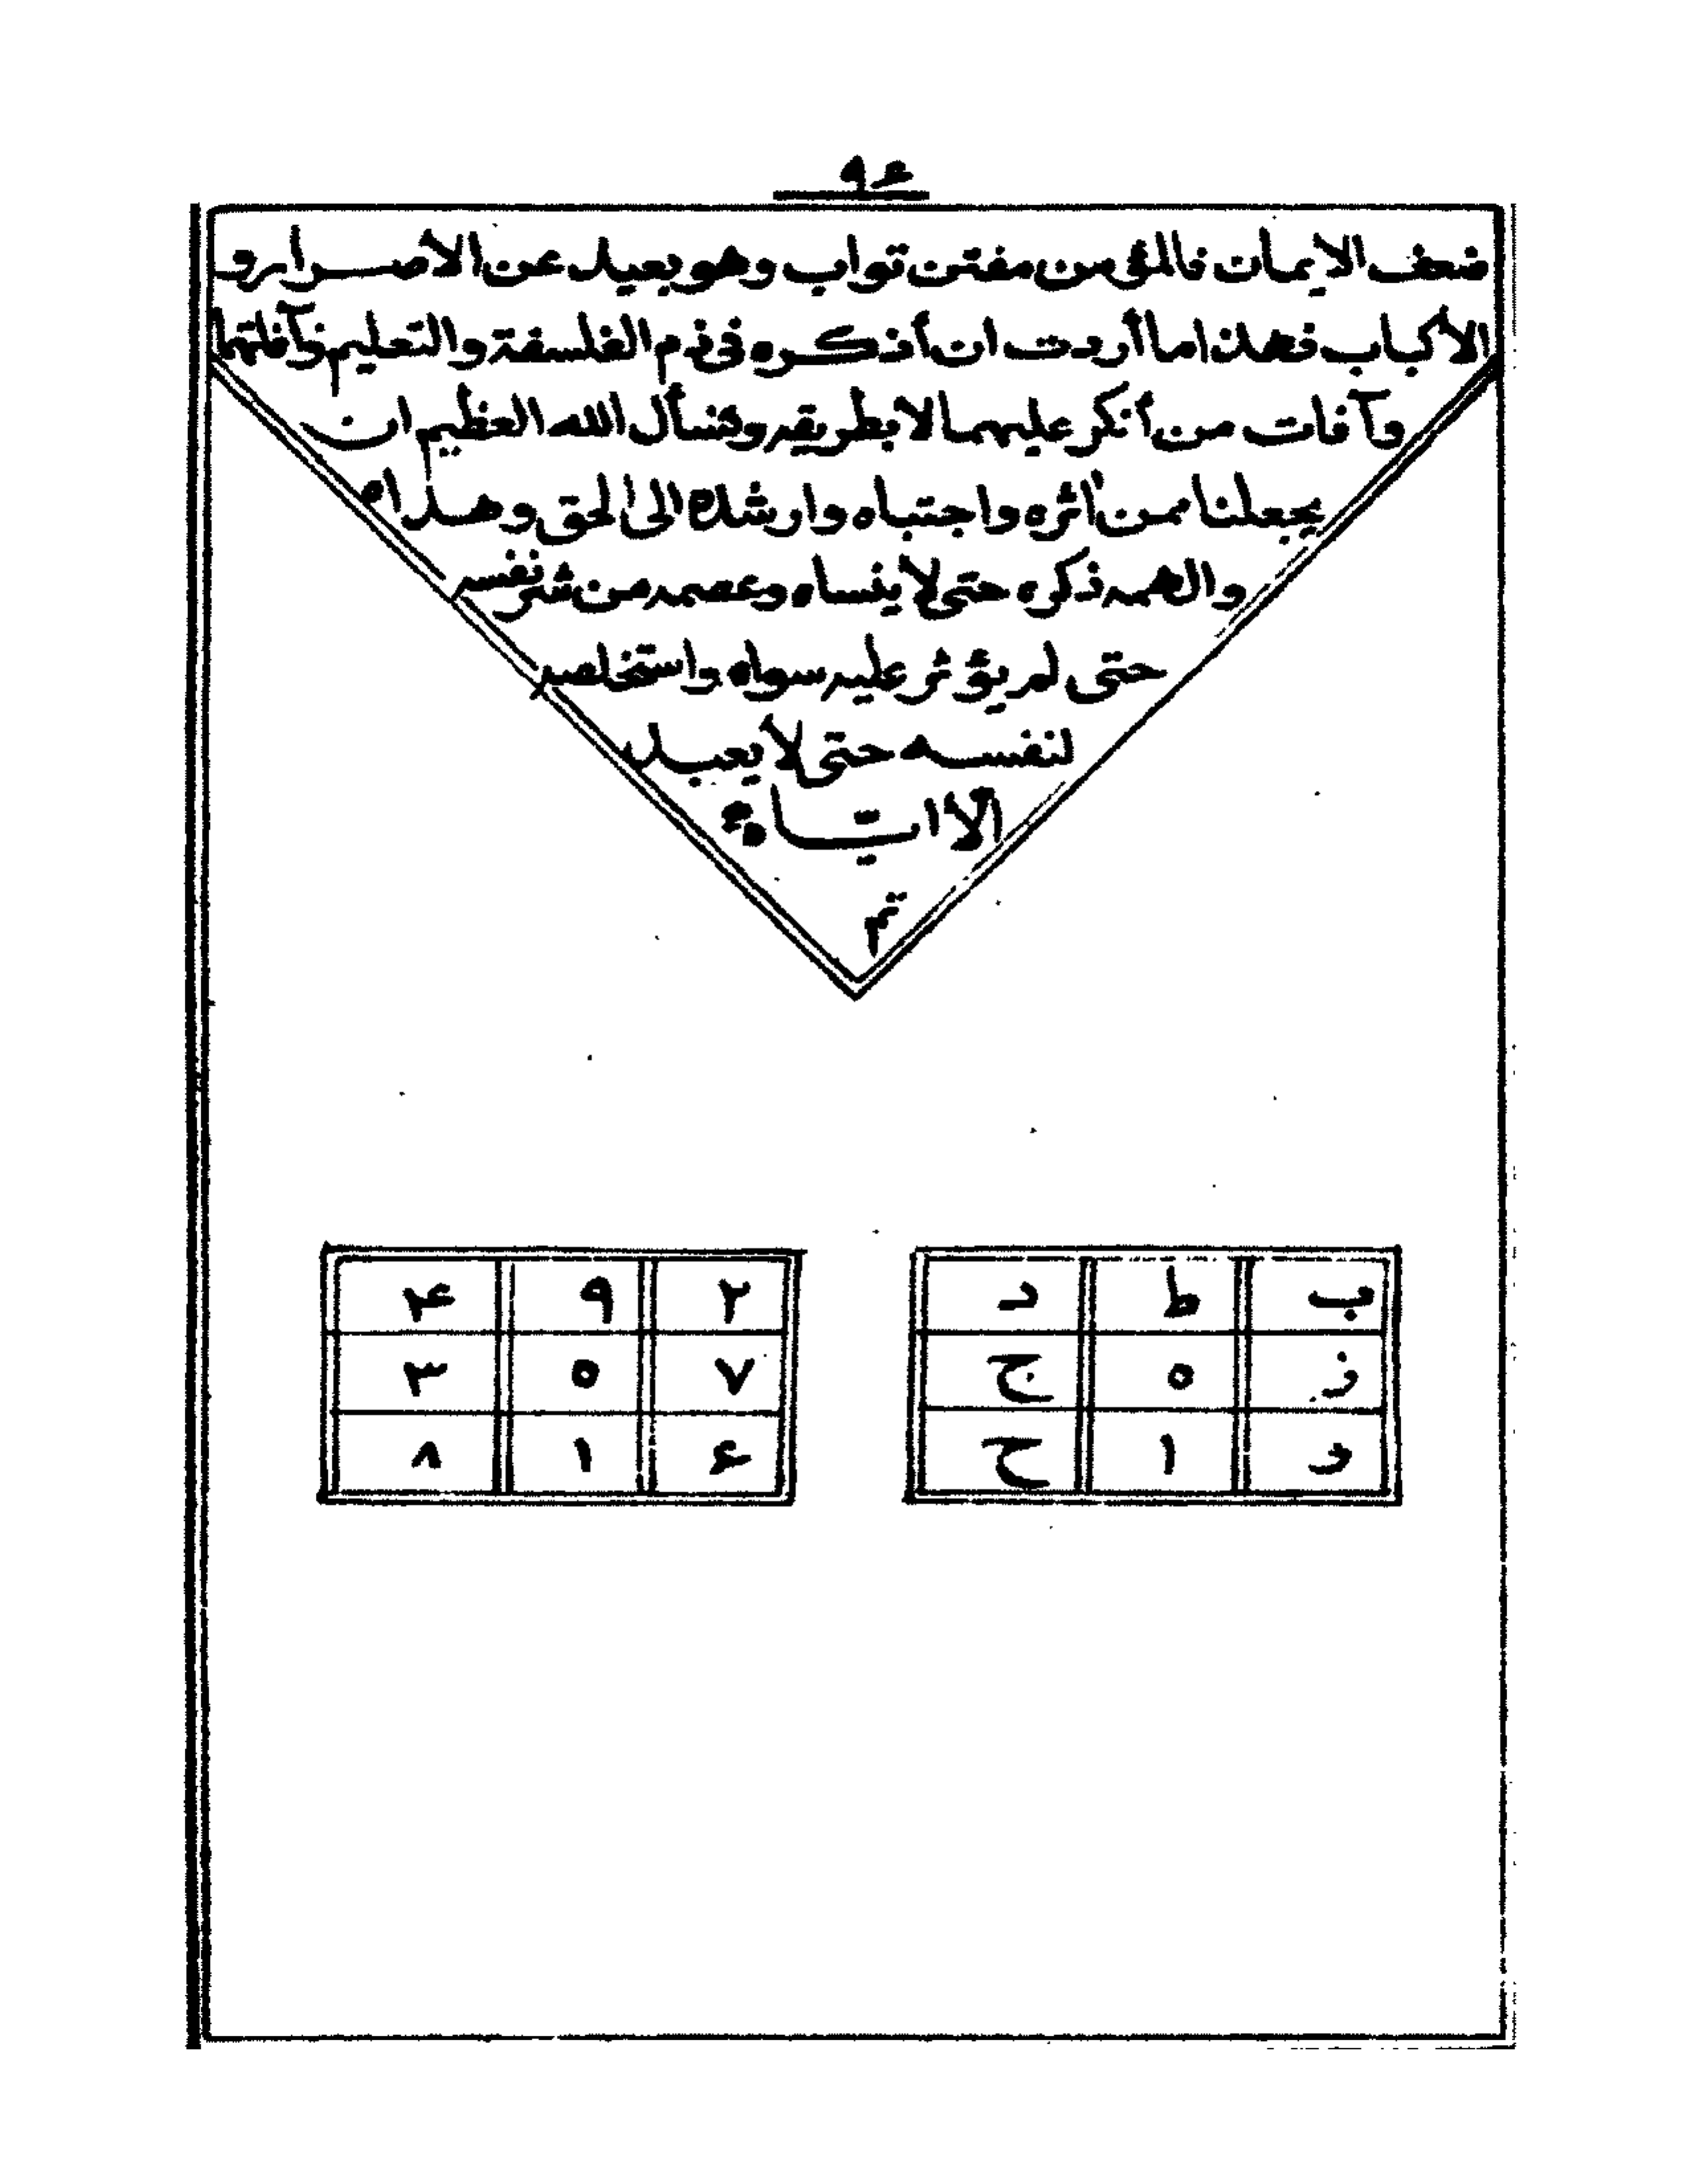 ٩٤
ضعف الايمان فالمؤمن مفتن تواب وهو بعيد عن الأصرار و
الأكباب فهذا ما أردت ان أذكره فى ذم الفلسفة والتعليم وآفاتهما
وآفات من أنكر عليهما لا بطريقه ونسأل الله العظيم ان
يجعلنا ممن آثره واجتباه وارشده الى الحق وهداه
والهمه ذكره حتى لا ينساه وعصمه من شر نفسه
حتى لم يؤثر عليه سواه واستخلصه
لنفسه حتى لا يعبد
الا اياه
تم
ب ط د
ز ه ج
و ا ح
۲ ۹ ۴
۷ ۵ ۳
۶ ۱ ۸